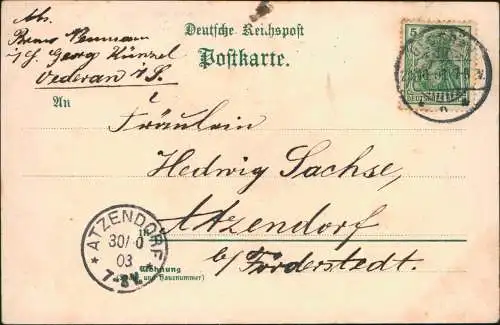 Abs.
Bruno Neumann
i/H. Georg Künzel
Oederan i/S.
Deutsche Reichspost
Postkarte.
5
An
Fräulein
Hedwig Sachse,
in Atzendorf
b/ Förderstedt.
Wohnung
(Straße und Hausnummer)
ATZENDORF
30/ 0
03
7-8V.